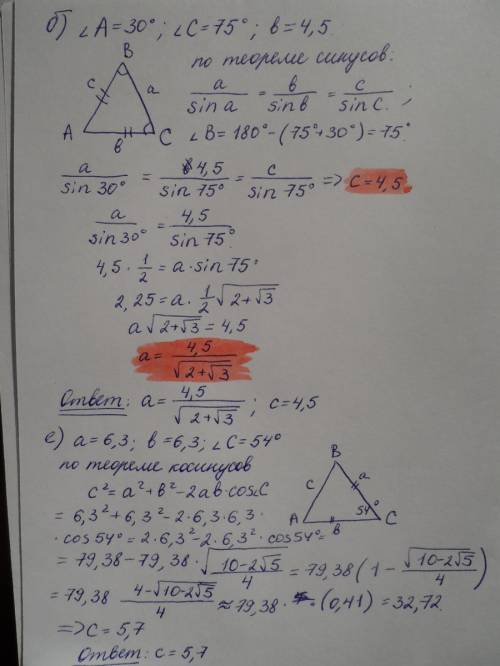 б) ∠A=30°; ∠C=75°; b=4,5
по теореме синусов:
B
c a
A b C
a/sin a = b/sin b = c/sin C ;
∠B=180°-(75°+30°)=75°
a/sin 30° = 4,5/sin 75° = c/sin 75° => c=4,5
a/sin 30° = 4,5/sin 75°
4,5 · 1/2 = a · sin 75°
2,25 = a · 1/2 √(2+√3)
a√(2+√3) = 4,5
a = 4,5/√(2+√3)
Ответ: a = 4,5/√(2+√3) ; c=4,5
е) a=6,3; b=6,3; ∠C=54°
по теореме косинусов
c²=a²+b²-2ab·cos∠C
= 6,3²+6,3²-2·6,3·6,3·
·cos 54° = 2·6,3²-2·6,3²·cos 54°=
B
c a
54°
A b C
= 79,38-79,38·√(10-2√5)/4 = 79,38(1-√(10-2√5)/4)
= 79,38 (4-√(10-2√5))/4 ≈ 79,38·(0,41) = 32,72.
=> c=5,7
Ответ: c=5,7